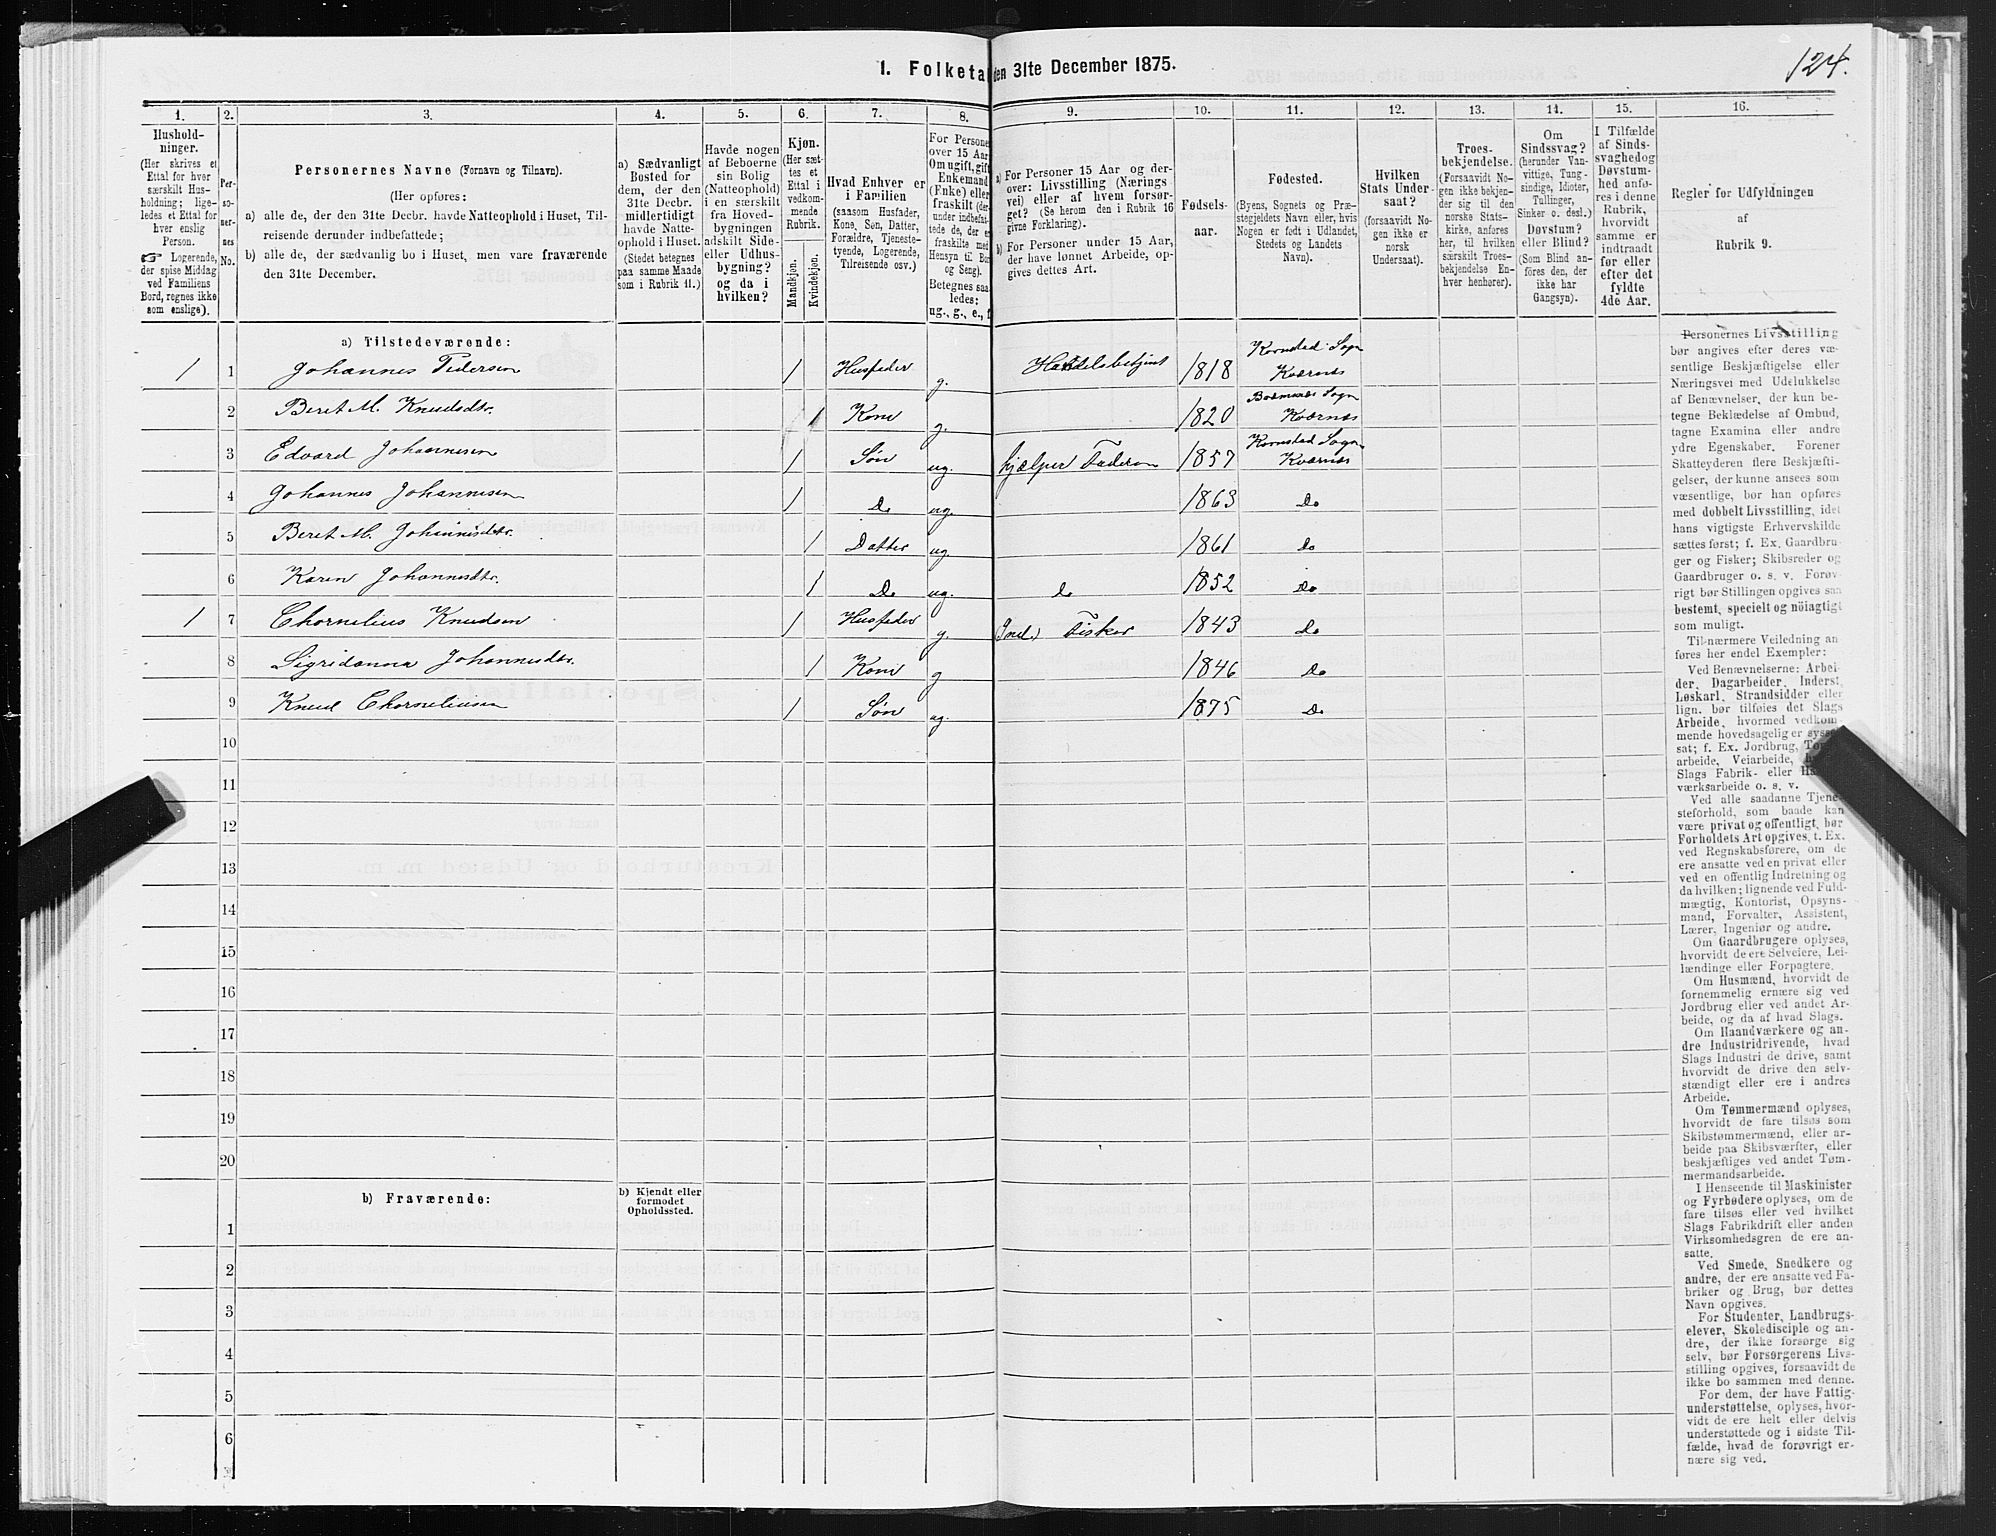 124.
1. Folketal den 31te December 1875.
1. 2. 3. 4. 5. 6. 7. 8. 9. 10. 11. 12. 13. 14. 15. 16.
Hushold-
ninger.
(Her skrives et
Ettal for hver
særskilt Hus-
holdning; lige-
ledes et Ettal for
hver enslig
Person.
☞ Logerende,
der spise Middag
ved Familiens
Bord, regnes ikke
som enslige).
Per-
so-
ner-
nes
No.
Personernes Navne (Fornavn og Tilnavn).
(Her opføres:
a) alle de, der den 31te Decbr. havde Natteophold i Huset, Til-
reisende derunder indbefattede;
b) alle de, der sædvanlig bo i Huset, men vare fraværende
den 31te December.
a) Sædvanligt
Bosted for
dem, der den
31te Decbr.
midlertidigt
havde Natte-
ophold i Huset.
(Stedet betegnes
paa samme Maade
som i Rubrik 11.)
Havde nogen
af Beboerne
sin Bolig
(Natteophold)
i en særskilt
fra Hoved-
bygningen
adskilt Side-
eller Udhus-
bygning?
og da i
hvilken?
Kjøn.
(Her sæt-
tes et
Ettal i
vedkom-
mende
Rubrik.
Mandkjøn.
Kvindekjøn.
Hvad Enhver er
i Familien
(saasom Husfader,
Kone, Søn, Datter,
Forældre, Tjeneste-
tyende, Logerende,
Tilreisende osv.)
For Persone
over 15 Aar
Om ugift, gift
Enkemand
(Enke) eller
fraskilt (der-
under indbefat-
tede de, der er
fraskilte med
Hensyn til Bor
og Seng).
Betegnes saa-
ledes:
ug., g., e., f
a) For Personer 15 Aar og der-
over: Livsstilling (Nærings
vei) eller af hvem forsør-
get? (Se herom den i Rubrik 16
givne Forklaring).
b) For Personer under 15 Aar,
der have lønnet Arbeide, op-
gives dettes Art.
Fødsels-
aar.
Fødested.
(Byens, Sognets og Præ-
stegjeldets Navn eller, hvis
Nogen er født i Udlandet,
Stedets og Landets
Navn).
Hvilken
Stats Under-
saat?
(forsaavidt No-
gen ikke er
norsk
Undersaat).
Troes-
bekjendelse.
(Forsaavidt No-
gen ikke bekjen-
der sig til den
norske Stats-
kirke, anføres
her, til hvilken
særskilt Troes-
bekjendelse En-
hver henhører).
Om
Sindssvag?
(herunder Van-
vittige, Tung-
sindige, Idioter,
Tullinger,
Sinker o. desl.)
Døvstum?
eller Blind?
(Som Blind an-
føres den, der
ikke har
Gangsyn).
I Tilfælde
af Sinds-
svaghedog
Døvstum-
hed anfø-
res i denne
Rubrik,
hvorvidt
samme er
indtraadt
før eller
efter det
fyldte
4de Aar.
Regler for Udfyldningen
af
Rubrik 9.
a) Tilstedeværende:
1 1 Johannes Pedersen 1 Husfader g. Handelsbetjent 1818 Kornstad Sogn Kværnæs
2 Beret M. Knudsdtr. 1 Kone g. 1820 Sogn Kværnæs
3 Edvard Johannesen 1 Søn ug. hjælper Faderen 1857 Kornstad Sogn Kværnæs
4 Johannes Johannesen 1 Do ug. 1863 Do
5 Beret M. Johannesdtr. 1 Datter ug. 1861 Do
6 Karen Johannesdtr. 1 Do ug. do 1852 Do
1 7 Chornelius Knudsen 1 Husfader g. (Ind.) Fisker 1843 Do
8 Sigridanna Johannesdtr. 1 Kone g 1846 Do
9 Knud Chorneliusen 1 Søn ug. 1875 Do
10
11
12
13
14
15
16
17
18
19
20
b) Fraværende:
b) Kjendt eller
formodet
Opholdssted.
1
2
3
4
5
6
Personernes Livsstilling
bør angives efter deres væ-
sentlige Beskjæftigelse eller
Næringsvei med Udelukkelse
af Benævnelser, der kun be-
tegne Beklædelse af Ombud,
tagne Examina eller andre
ydre Egenskaber. Forener
Skatteyderen flere Beskjæfti-
gelser, der kunne ansees som
væsentlige, bør han opføres
med dobbelt Livsstilling, idet
hans vigtigste Erhvervskilde
sættes først; f. Ex. Gaardbru-
ger og Fisker; Skibsreder og
Gaardbruger o. s. v. Forøv-
rigt bør Stillingen opgives saa
bestemt, specielt og nöiagtigt
som muligt.
Til nærmere Veiledning an
føres her endel Exempler:
Ved Benævnelserne: Arbei-
der, Dagarbeider, Inderst,
Løskarl, Strandsidder eller
lign. bør tilføies det Slags
Arbeide, hvormed vedkom-
mende hovedsagelig er syssel
sat; f. Ex. Jordbrug, To
arbeide, Veiarbeide,
Slags Fabrik- eller
værksarbeide o. s. v.
Ved alle saadanne Tjene-
steforhold, som baade kan
være privat og offentligt, bør
Forholdets Art opgives, t. Ex.
ved Regnskabsførere, om de
ere ansatte ved en privat eller
ved en offentlig Indretning og
da hvilken; lignende ved Fuld-
mægtig, Kontorist, Opsyns-
mand, Forvalter, Assistent,
Lærer, Ingeniør og andre.
Om Gaardbrugere oplyses,
hvorvidt de ere Selveiere, Lei-
lændinge eller Forpagtere.
Om Husmænd, hvorvidt de
fornemmelig ernære sig ved
Jordbrug eller ved andet Ar-
beide, og da af hvad Slags.
Om Haandværkere og an-
dre Industridrivende, hvad
Slags Industri de drive, samt
hvorvidt de drive den selv-
stændigt eller ere i andres
Arbeide.
Om Tømmermænd oplyses,
hvorvidt de fare tilsøs som
Skibstømmermænd, eller ar-
beide paa Skibsværfter, eller
beskjæftiges ved andet Tøm-
mermandsarbeide.
I Henseende til Maskinister
og Fyrbødere oplyses, om de
fare tilsøs eller ved hvilket
Slags Fabrikdrift eller anden
Virksomhedsgren de ere an-
satte.
Ved Smede, Snedkere og
andre, der ere ansatte ved Fa-
briker og Brug, bør dettes
Navn opgives.
For Studenter, Landbrugs-
elever, Skoledisciple og an-
dre, der ikke forsørge sig
selv, bør Forsørgerens Livs-
stilling opgives, forsaavidt de
ikke bo sammen med denne.
For dem, der have Fattig-
understøttelse, oplyses, hvor-
vidt de ere helt eller delvis
understøttede og i sidste Til-
fælde, hvad de forøvrigt er-
nære sig ved.